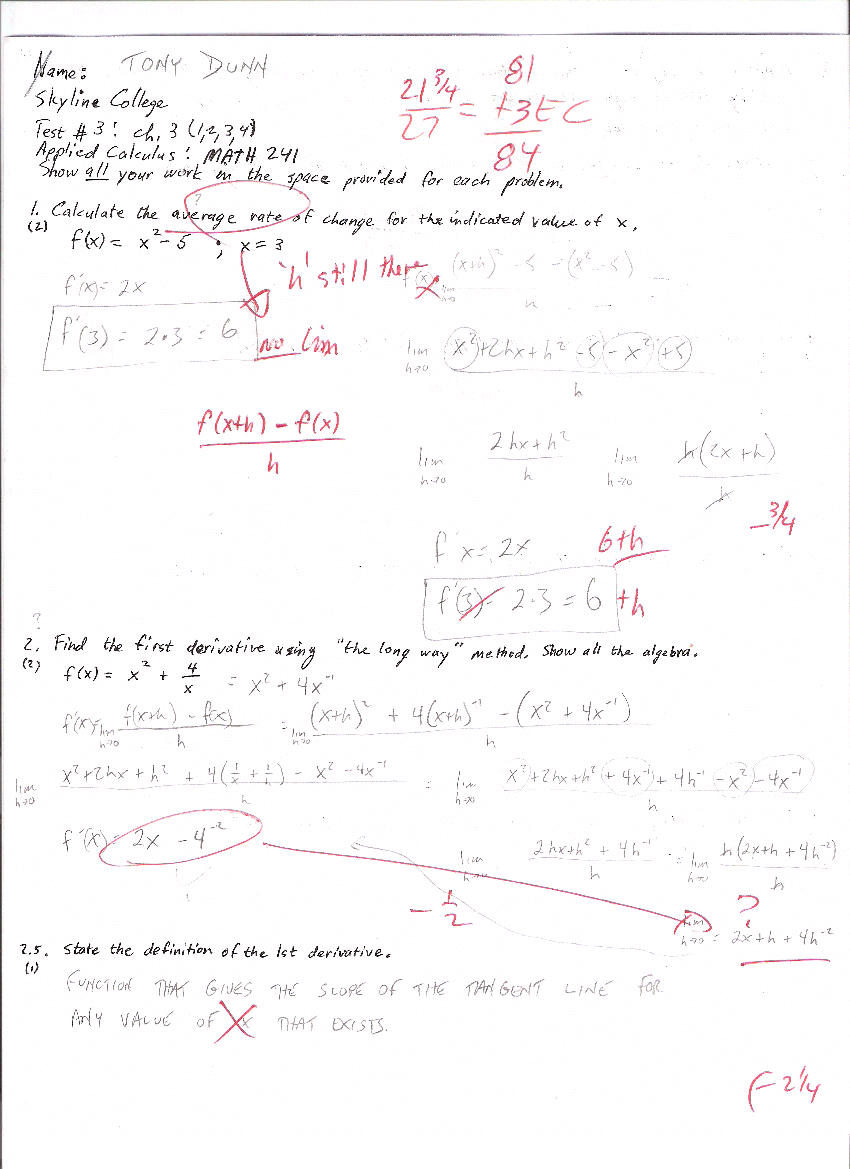 Name: TONY DUNN
Skyline College
Test #3: ch. 3 (1,2,3,4)
Applied Calculus: MATH 241
Show all your work in the space provided for each problem.
21 3/4 / 27 = 81
+3 EC
84
?
1. Calculate the average rate of change for the indicated value of x.
(2)
f(x) = x² - 5 ; x = 3
'h' still there
f'(x) lim h→0 ((x+h)² - 5 - (x² - 5)) / h
f'(x) = 2x
f'(3) = 2·3 = 6
no lim
lim h→0 (x² + 2hx + h² - 5 - x² + 5) / h
(f(x+h) - f(x)) / h
lim h→0 (2hx + h²) / h lim h→0 h(2x + h) / h
-3/4
f'x = 2x 6+h
f'(3) = 2·3 = 6 +h
?
2. Find the first derivative using "the long way" method. Show all the algebra.
(2)
f(x) = x² + 4/x = x² + 4x⁻¹
f'(x) = lim h→0 (f(x+h) - f(x)) / h = lim h→0 ((x+h)² + 4(x+h)⁻¹ - (x² + 4x⁻¹)) / h
lim h→0 (x² + 2hx + h² + 4(1/x + 1/h) - x² - 4x⁻¹) / h = lim h→0 (x² + 2hx + h² + 4x⁻¹ + 4h⁻¹ - x² - 4x⁻¹) / h
f'(x) = 2x - 4⁻²
lim h→0 (2hx + h² + 4h⁻¹) / h = lim h→0 h(2x + h + 4h⁻²) / h
-1/2
?
lim h→0 = 2x + h + 4h⁻²
2.5. State the definition of the 1st derivative.
(1)
FUNCTION THAT GIVES THE SLOPE OF THE TANGENT LINE FOR
ANY VALUE OF X THAT EXISTS.
(-2 1/4